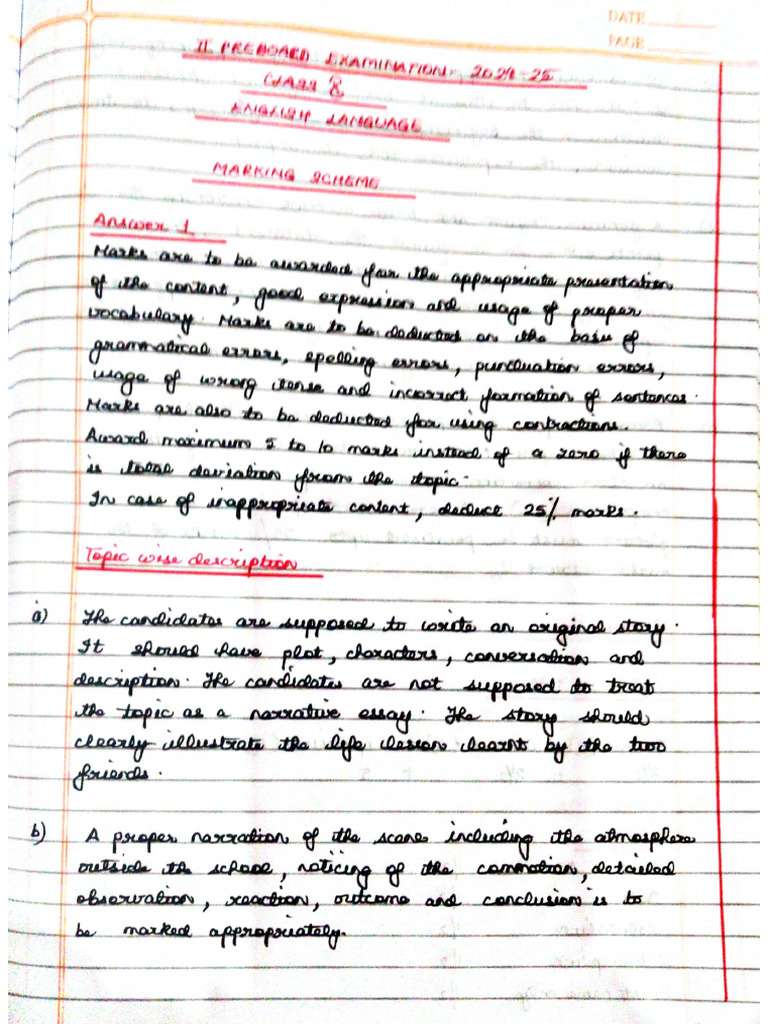 DATE
PAGE
II PREBOARD EXAMINATION- 2024-25
CLASS
ENGLISH LANGUAGE
MARKING SCHEME
Answer 1
Marks are to be awarded for the appropriate presentation
of the content, good expression and usage of proper
vocabulary. Marks are to be deducted on the basis of
grammatical errors, spelling errors, punctuation errors,
usage of wrong tense and incorrect formation of sentences.
Marks are also to be deducted for using contractions.
Award maximum 5 to 10 marks instead of a zero if there
is total deviation from the topic.
In case of inappropriate content, deduct 25% marks.
Topic wise description
a) The candidates are supposed to write an original story.
It should have plot, characters, conversation and
description. The candidates are not supposed to treat
the topic as a narrative essay. The story should
clearly illustrate the life lesson learnt by the two
friends.
b) A proper narration of the scene including the atmosphere
outside the school, noticing of the commotion, detailed
observation, reaction, outcome and conclusion is to
be marked appropriately.